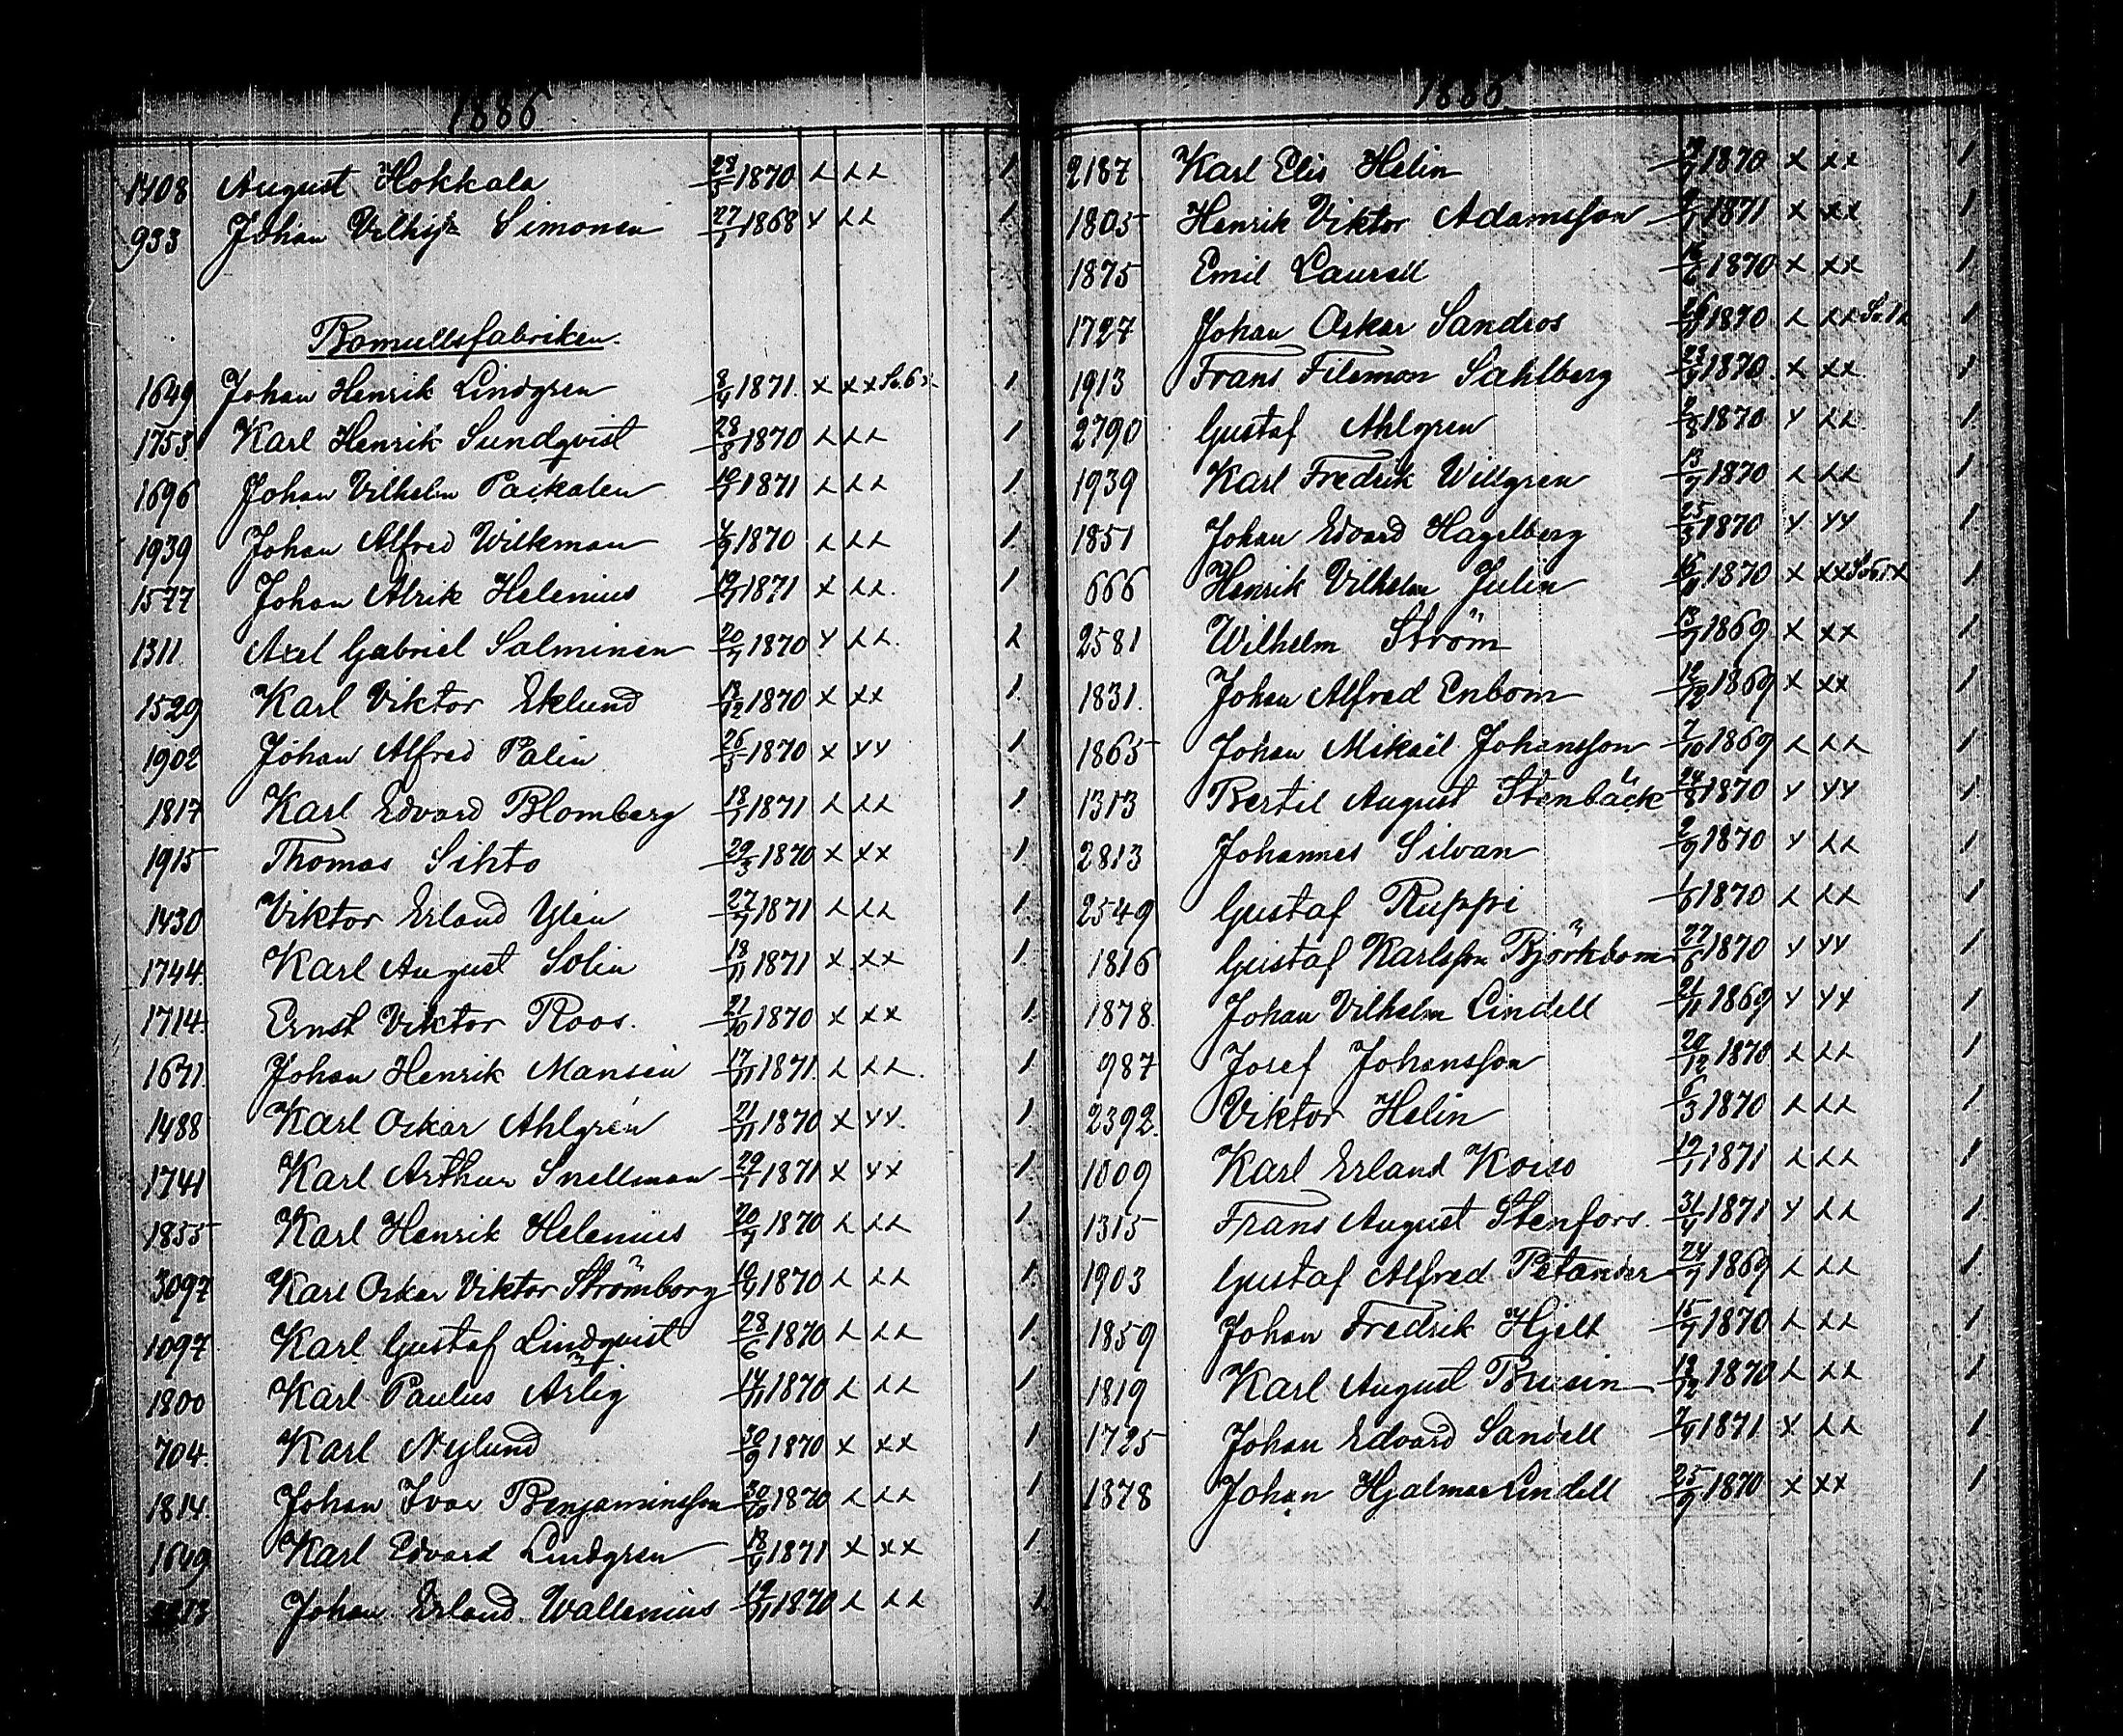 1886
1408 August Hokkala 28/5 1870 x xx 1
933 Johan Vilhjh Simonen 27/1 1868 x xx 1
Bomullsfabriken.
1649 Johan Henrik Lindgren 8/4 1871. x xx 1
1753 Karl Henrik Sundqvist 28/8 1870 x xx 1
1696 Johan Vilhelm Paikalen 1871 x xx 1
1939 Johan Alfred Wilkman 4/9 1870 x xx 1
1577 Johan Alrik Helenius 1871 x xx. 1
1311. Axel Gabriel Salminen 20/7 1870 x xx 2
1529 Karl Viktor Eklund 1870 x xx 1
1902 Johan Alfred Palin 26/3 1870 x xx 1
1817 Karl Edvard Blomberg 18/1 1871 x xx 1
1915 Thomas Sihto 29/3 1870 x xx 1
1430 Viktor Erland Ylén 1871 x xx 1
1744. Karl August Solin 18/11 1871 x xx 1
1714 Ernst Viktor Roos. 21/10 1870 x xx 1
1671. Johan Henrik Mansén 17/11 1871. x xx. 1
1488 Karl Oskar Ahlgrén 21/11 1870 x xx. 1
1741 Karl Arthur Snellman 29/1 1871 x xx 1
1855 Karl Henrik Helenius 20/7 1870 x xx 1
3097 Karl Oskar Viktor Strömborg 1870 x xx 1
1097. Karl Gustaf Lindqvist 28/6 1870 x xx 1
1800 Karl Paulus Arlig 14/11 1870 x xx 1
704. Karl Nylund 30/9 1870 x xx 1
1814. Johan Ivar Benjaminsson 30/10 1870 x xx 1
1649 Karl Edvard Lindgren 1871 x xx 1
Johan Erland Wallenius 1870 x xx 1
1886
2187 Karl Elis Helin 1870 x xx 1
1805 Henrik Viktor Adamsson 1871 x xx 1
1875 Emil Laurell 1870 x xx 1
1727 Johan Oskar Sandros 1870 x xx 1
1913 Frans Filemon Sahlberg 1870. x xx 1
2790 Gustaf Ahlgren 1870 x xx 1
1939 Karl Fredrik Willgren 13/7 1870 x xx 1
1851 Johan Edvard Hagelberg 25/3 1870 x xx 1
666 Henrik Vilhelm Julin 1870 x xx 1
2581 Wilhelm Ström 1869 x xx 1
1831. Johan Alfred Enbom 1869 x xx 1
1865 Johan Mikael Johansson 7/10 1869 x xx 1
1313 Bertil August Stenbäck 24/8 1870 x xx 1
2813 Johannes Silvan 2/9 1870 x xx 1
2549 Gustaf Ruppi 1870 x xx 1
1816 Gustaf Karlsson Björkbom 27/6 1870 x xx 1
1878. Johan Vilhelm Lindell 21/11 1869 x xx 1
987 Josef Johansson 20/12 1870 x xx 1
2392. Viktor Helin 6/3 1870 x xx 1
1009 Karl Erland Koiso 19/1 1871 x xx 1
1315 Frans August Stenfors. 1871 x xx 1
1903 Gustaf Alfred Petander 24/7 1869 x xx 1
1859 Johan Fredrik Hjelt 15/7 1870 x xx 1
1819 Karl August Brusin 1870 x xx 1
1725 Johan Edvard Sandell 1871 x xx 1
1878 Johan Hjalmar Lindell 25/9 1870 x xx 1